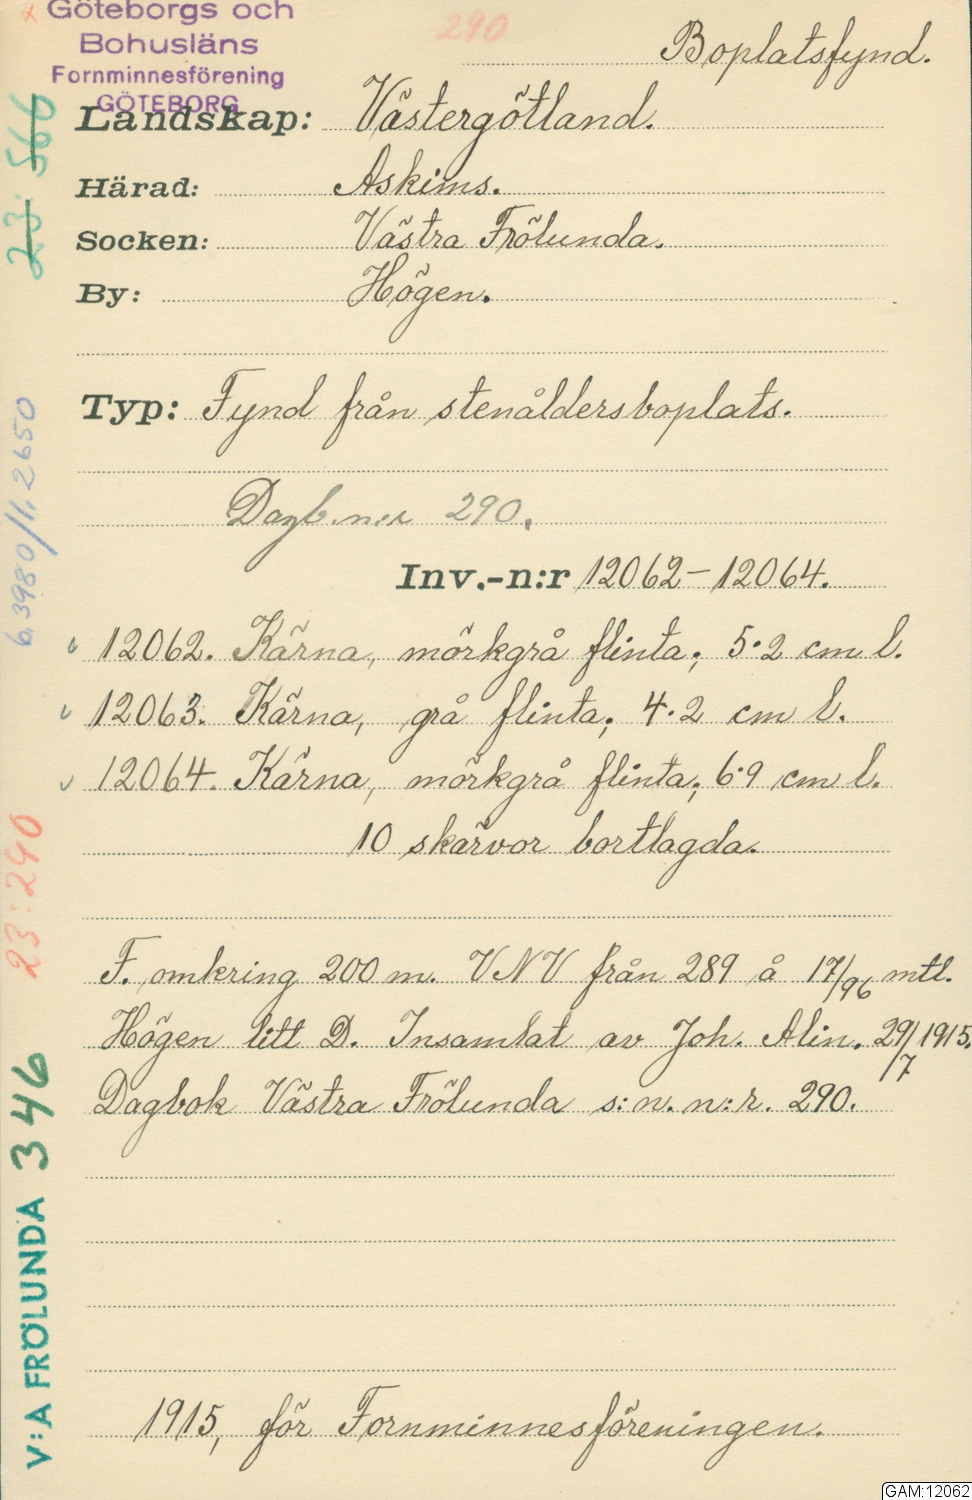 Göteborgs och
Bohusläns
Fornminnesförening
GÖTEBORG
290
Boplatsfynd.
Landskap: Västergötland.
Härad: Askims.
Socken: Västra Frölunda.
By: Högen.
Typ: Fynd från stenåldersboplats.
Dagb.n:r 290.
Inv.-n:r 12062-12064.
12062. Kärna, mörkgrå flinta; 5·2 cm l.
12063. Kärna, grå flinta; 4·2 cm l.
12064. Kärna, mörkgrå flinta; 6·9 cm l.
10 skärvor bortlagda.
F. omkring 200 m. VNV från 289 å 17/96 mtl.
Högen litt D. Insamlat av Joh. Alin. 29/7 1915.
Dagbok Västra Frölunda s:n. n:r. 290.
1915, för Fornminnesföreningen.
23:566
6.3980/11.2650
23:290
V:A FRÖLUNDA 346
GAM:12062